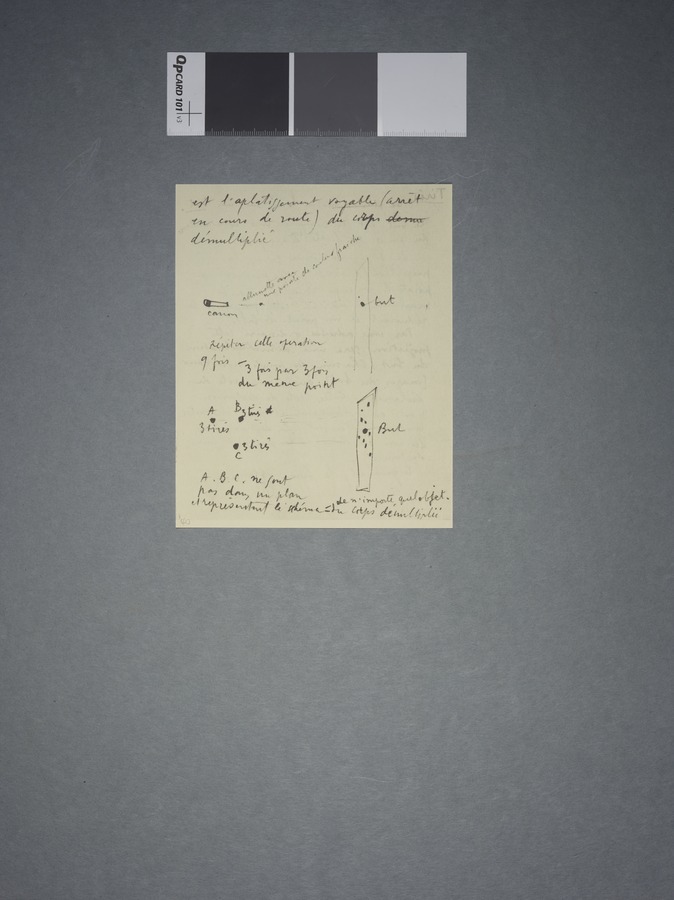 QPCARD 101 v3
est l'aplatissement voyable (arrêt
en cours de route) du corps
démultiplié
allumette avec
une pointe de couleur fraîche
canon
but
répéter cette opération
9 fois — 3 fois par 3 fois
du même point
A
3 tirés
B 3 tirés
3 tirés
C
But
A. B C. ne sont
pas dans un plan
et représentent le schéma de n'importe quel objet.
du corps démultiplié